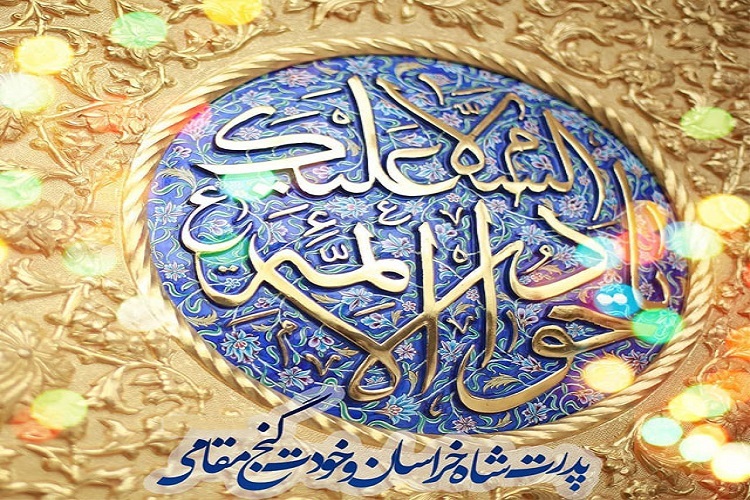 السلام علیک
یا جواد
الائمة ع
پدرت شاه خراسان و خودت گنج مقامی